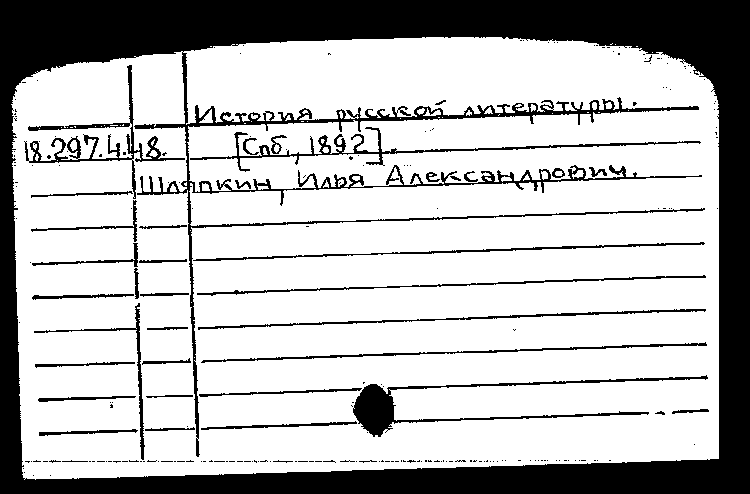 История русской литературы.
18.297.4.48. [Спб., 1892].
Шляпкин, Илья Александрович.